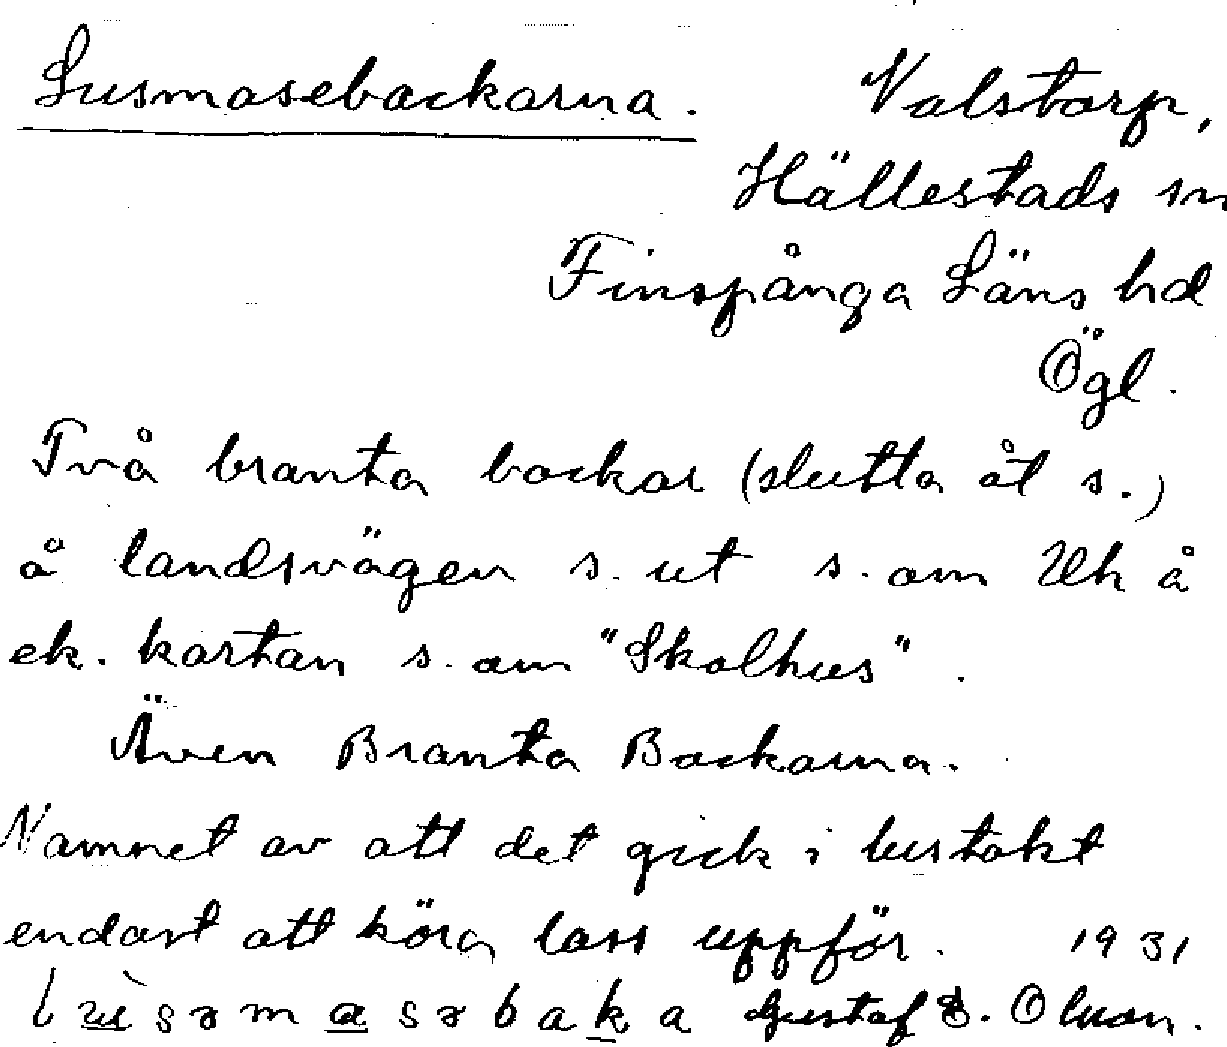 Lusmasebackarna. Valstorp,
Hällestads sn
Finspånga Läns hd
Ögl.
Två branta backar (slutta åt s.)
å landsvägen s. ut s. om Uh å
ek. kartan s. om "Skolhus".
Även Branta Backarna.
Namnet av att det gick i lustakt
endast att köra lass uppför. 1931
lùsəmasəbaka Gustaf E. Olson.